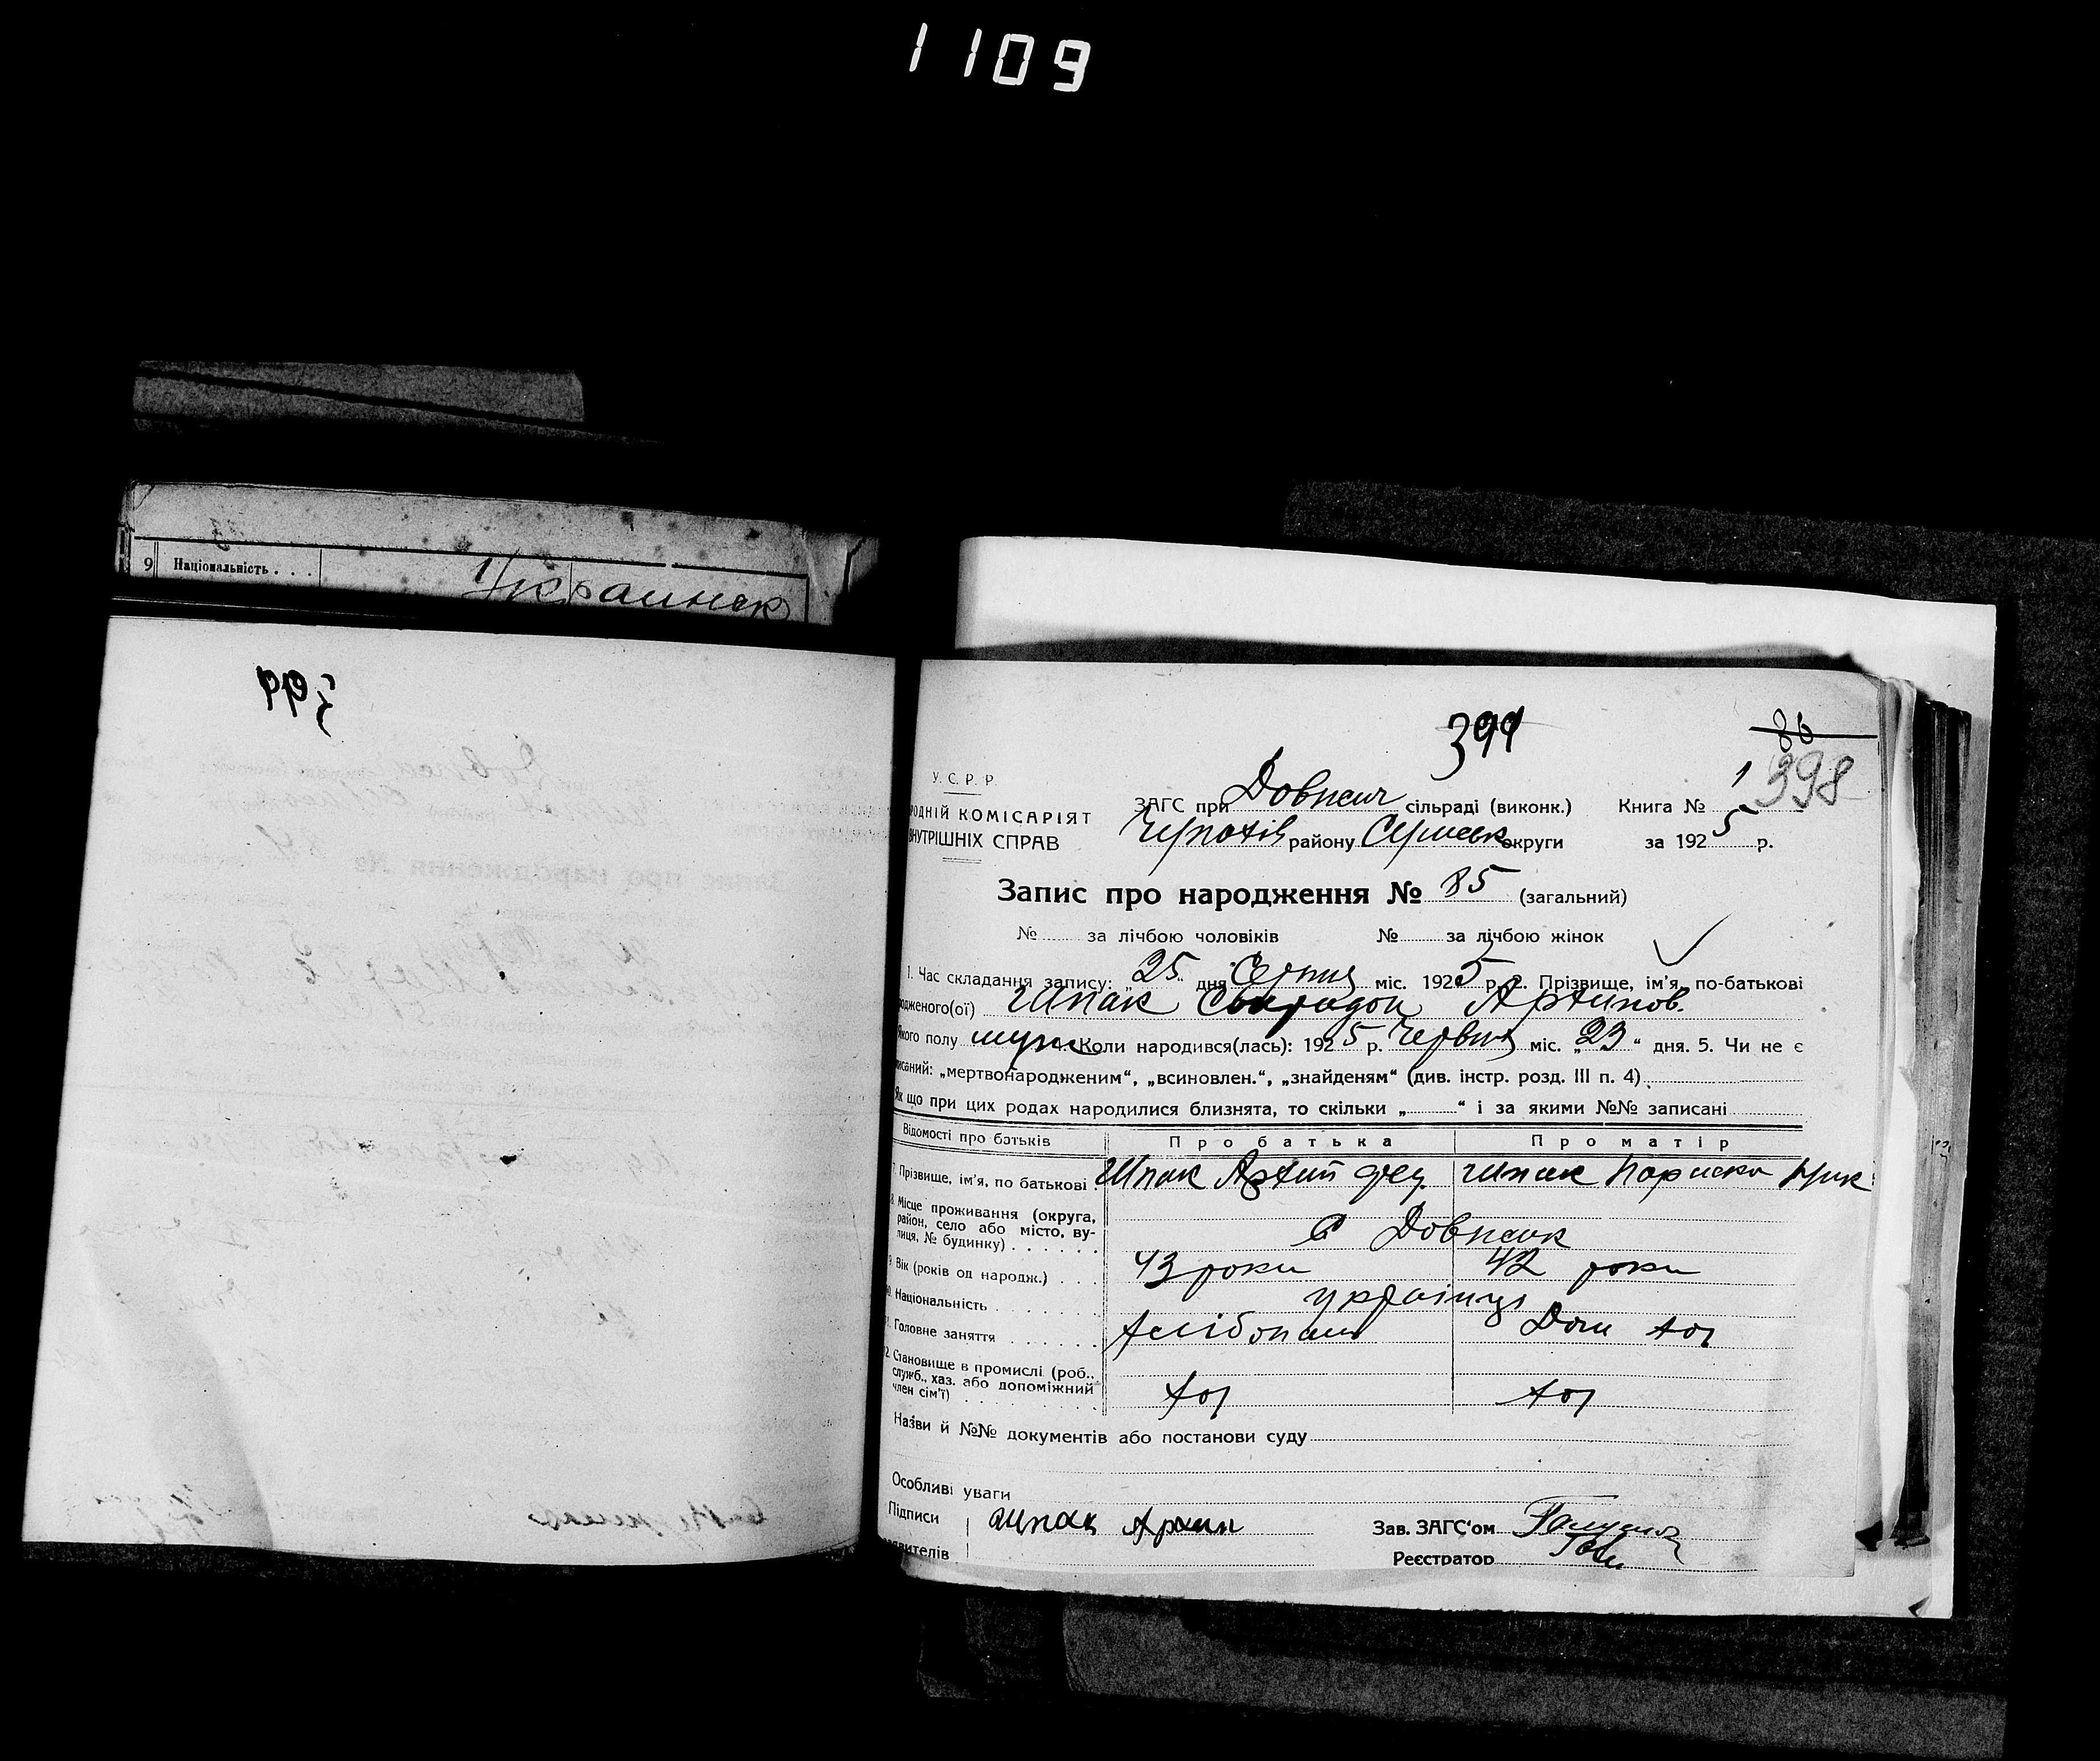 1109
9 Національність . . . Украинск
399
399
86
398
У. С. Р. Р.
РОДНІЙ КОМІСАРІЯТ
ВНУТРІШНІХ СПРАВ
ЗАГС при Довжик сільраді (виконк.) Книга № 1
району округи за 1925 р.
Запис про народження № 85 (загальний)
№ за лічбою чоловіків № за лічбою жінок
1. Час складання запису: „25“ дня Серпня міс. 1925 р. 2. Прізвище, ім'я, по-батькові
родженого(ої) Шпак Артимов.
якого полу муж 4. Коли народився(лась): 1925 р. Червня міс. „23“ дня. 5. Чи не є
писаний: „мертвонародженим“, „всиновлен.“, „знайденям“ (див. інстр. розд. III п. 4)
Як що при цих родах народилися близнята, то скільки „ “ і за якими №№ записані
Відомості про батьків Про батька Про матір
7. Прізвище, ім'я, по батькові Шпак Артим Фед. Шпак
8. Місце проживання (округа,
район, село або місто, ву-
лиця, № будинку) . . . . . . С Довжик
9. Вік (років од народж.) . . . 43 роки 42 роки
10. Національність . . . . . . . українці
11. Головне заняття . . . . . . хлібопаш Дом хоз
12. Становище в промислі (роб.,
служб., хаз. або допоміжний
член сім'ї) . . . . . . . . . хоз хоз
Назви й №№ документів або постанови суду
Особливі уваги
Підписи Шпак Зав. ЗАГС'ом
явителів Реєстратор